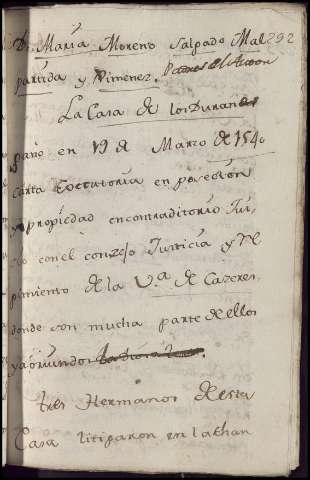 D. Maria Moreno Salgado Mal 292
partida y Ximenez.
La Casa de los Duranes
gano en 19 de Marzo de 1540
carta Executoria en posesion
y propiedad en contraditorio Jui-
cio con el conzejo Justicia y Re
gimiento de la V.ª de Cazeres,
donde son mucha parte de ellos
y a oriundos
tres Hermanos de esta
Casa litigaron en la Chan